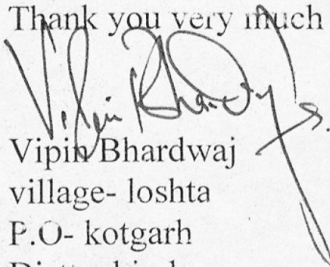 Thank you very much
Vipin Bhardwaj
Vipin Bhardwaj
village- loshta
P.O- kotgarh